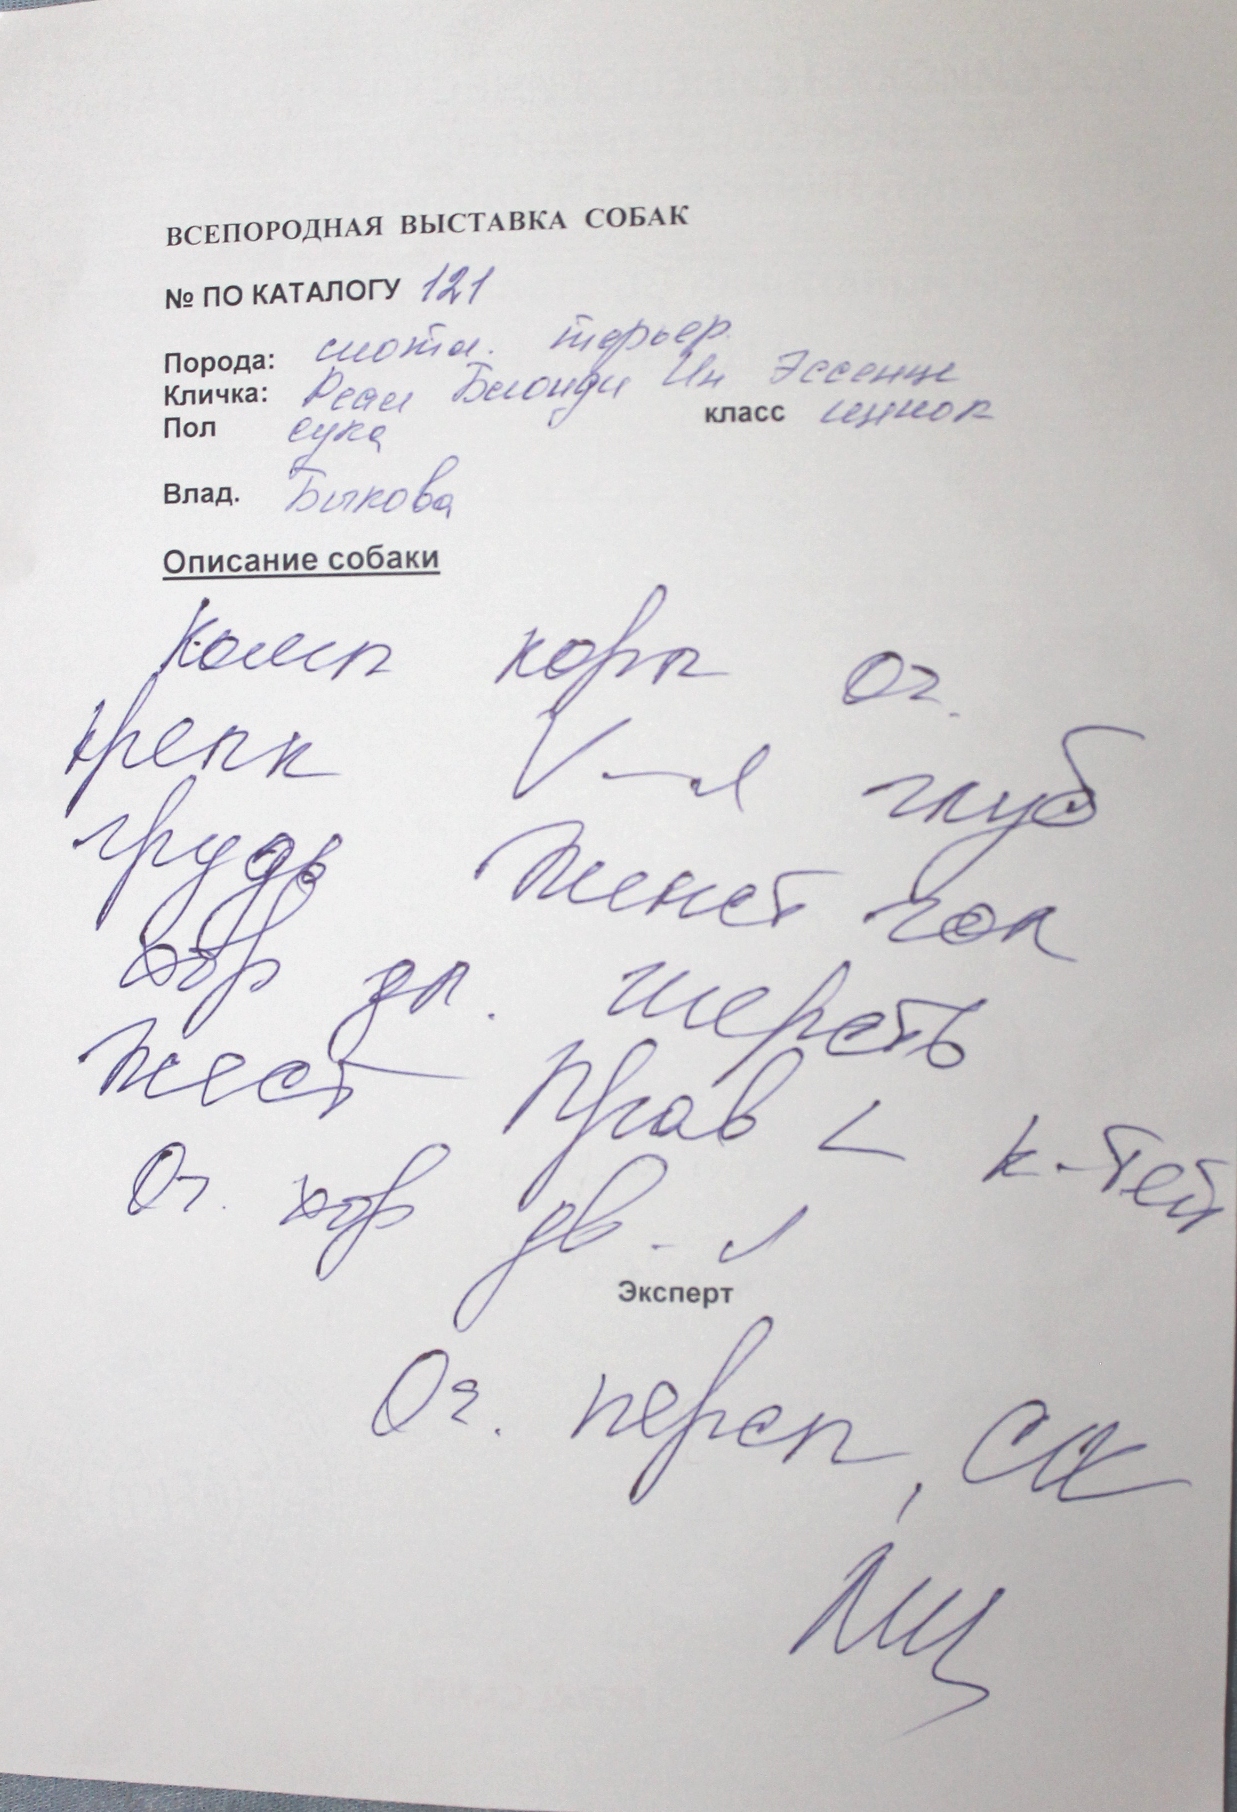 ВСЕПОРОДНАЯ ВЫСТАВКА СОБАК
№ ПО КАТАЛОГУ 121
Порода: шотл. терьер
Кличка: Реал Блонди Ин Эссенце
Пол сука класс щенок
Влад. Быкова
Описание собаки
Комп корп Оч.
крепк V-л глуб
грудь Женст гол
хор дл. шерсть
Жест Прав < к-тей
Оч. хор дв-л
Эксперт
Оч. персп, СК
ЛЩ